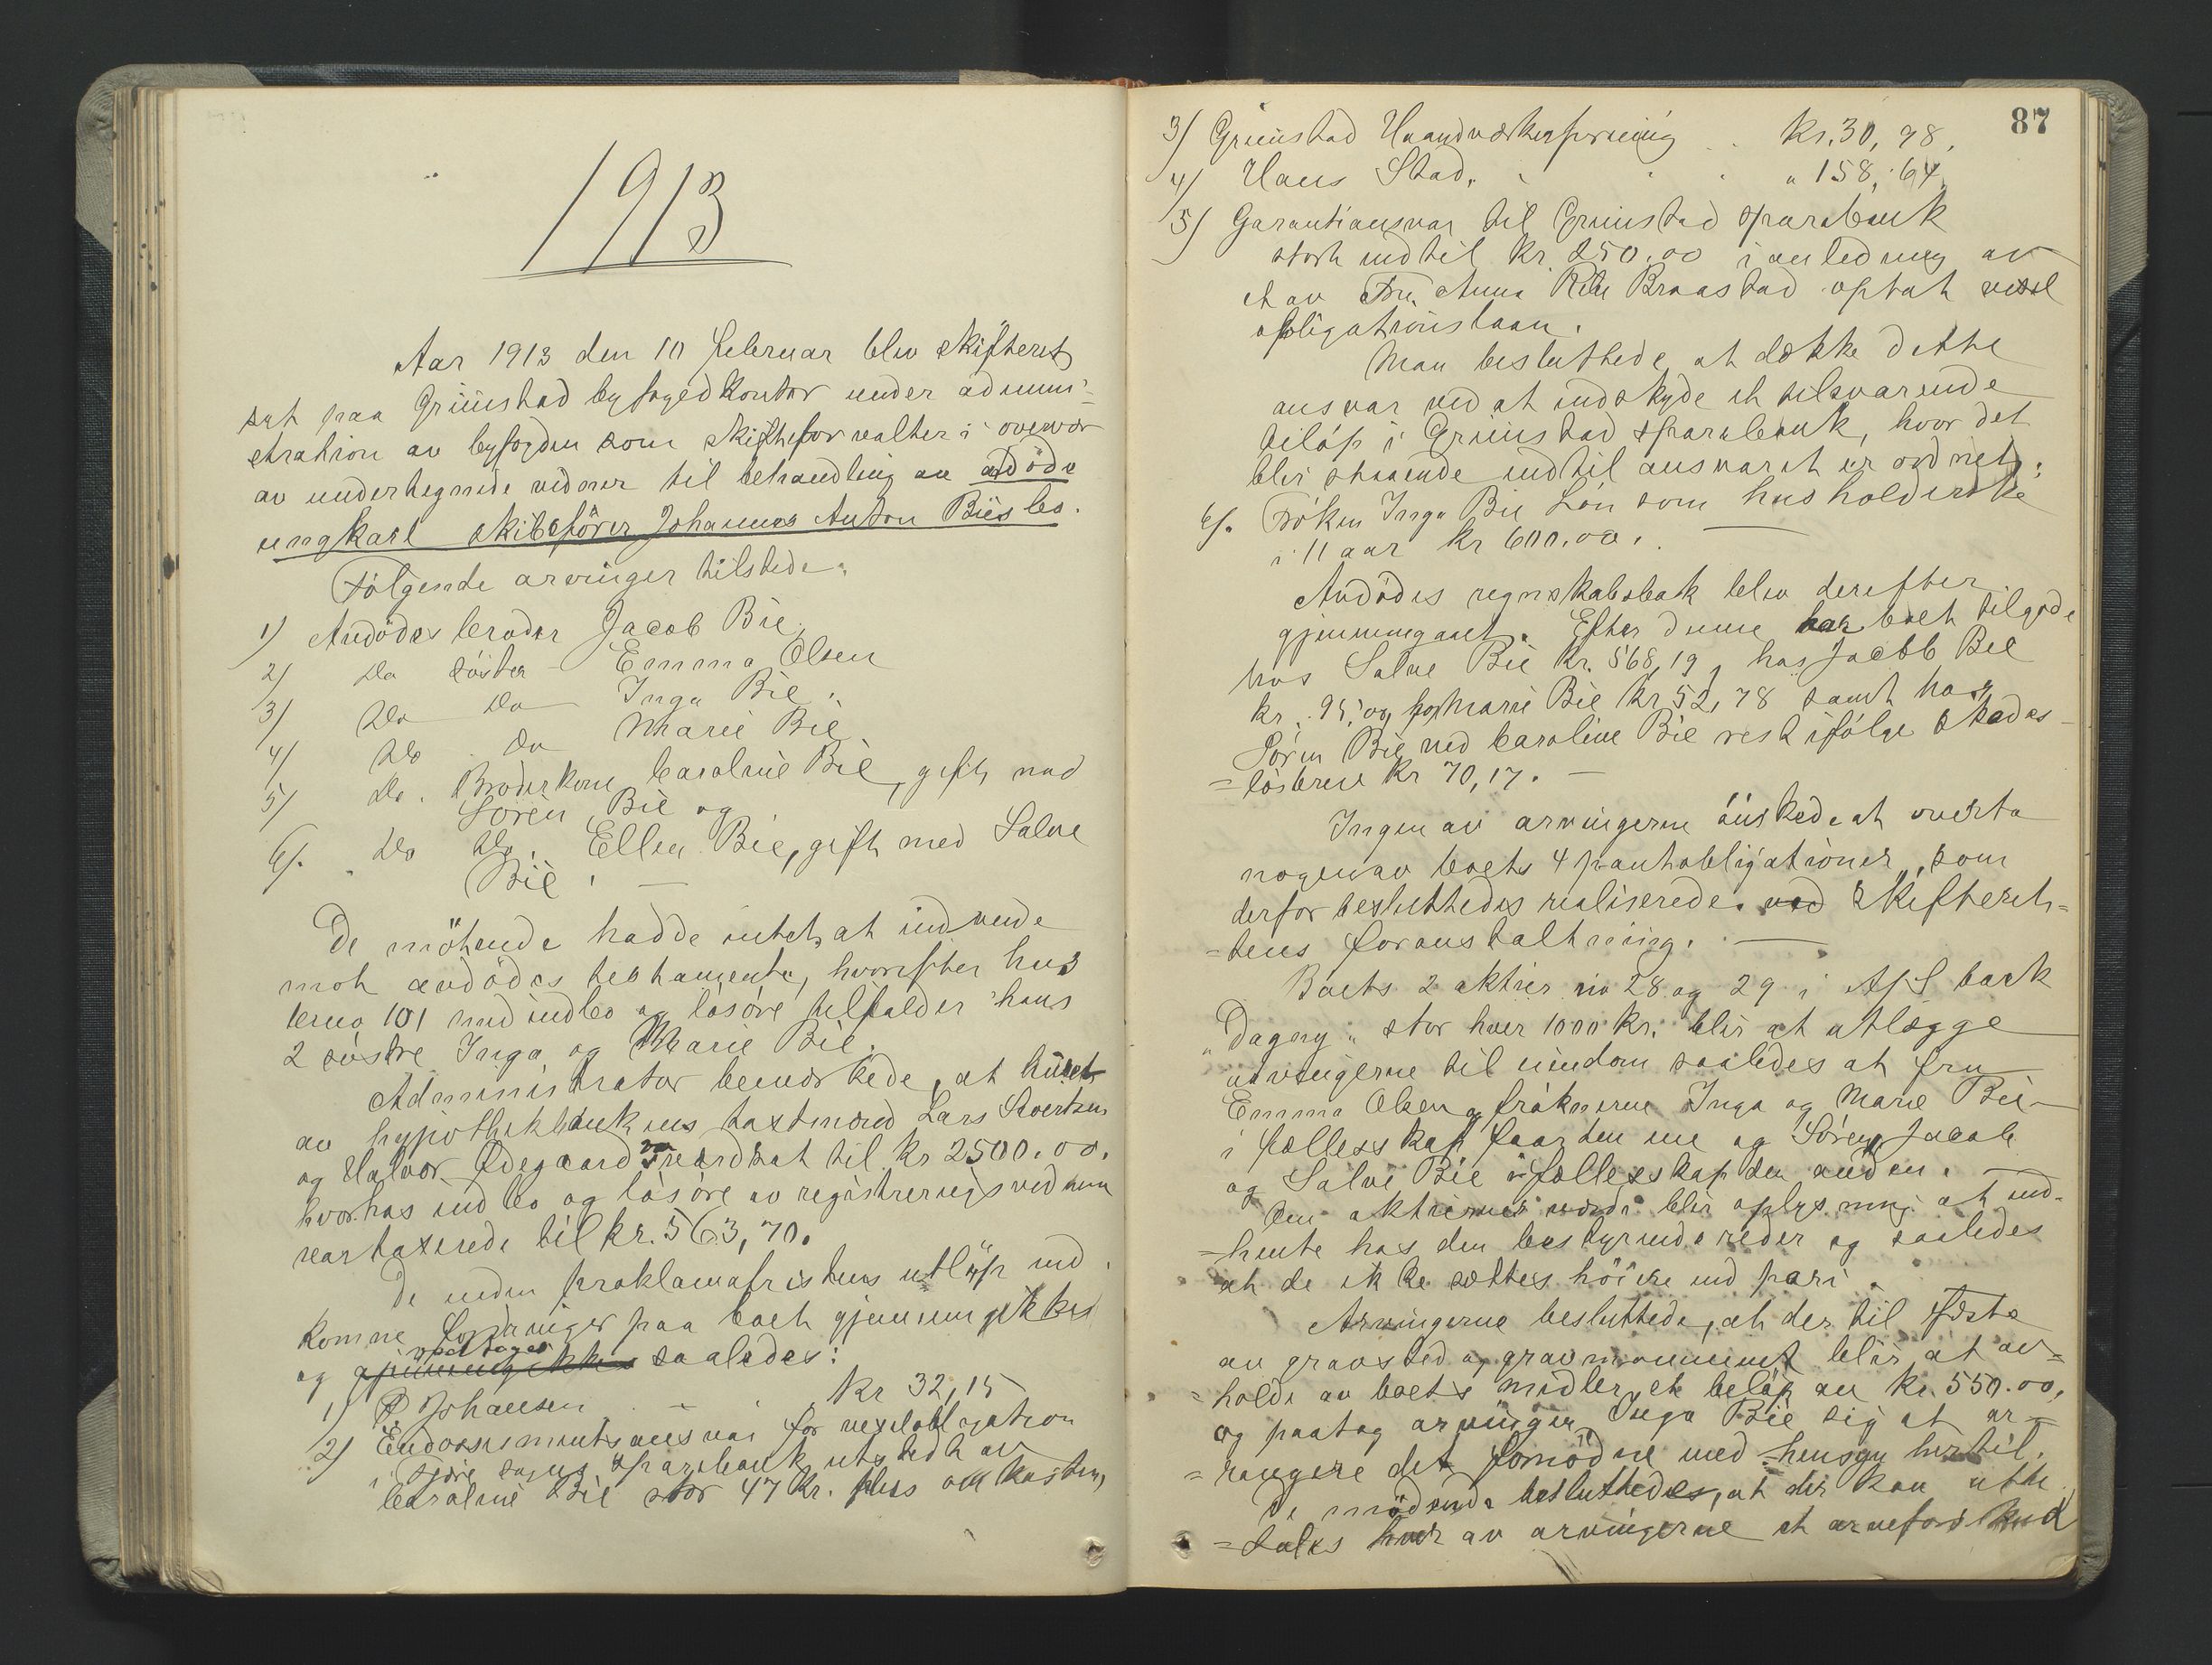 1913
Aar 1913 den 10 februar blev skifteret
sat paa Grimstad byfogedkontor under admini-
stration av byfogden som skifteforvalter i overvær
av undertegnede vidner til behandling av avdöde
ungkarl skibsförer Johannes Anton Bies bo.
Følgende arvinger tilstede.
1) Avdödes broder Jacob Bie.
2) Do söster Emma Olsen
3) Do Do Inga Bie.
4) Do Do Marie Bie.
5) Do. Broderkone Caroline Bie, gift med
Sören Bie og
6). Do Do. Ellen Bie, gift med Salve
Bie. —
De mötende hadde intet at indvende
mot avdödes testamente, hvorefter hus
brno 101 med indbo og lösöre tilfalder hans
2 söstre Inga og Marie Bie.
Administrator bemerkede, at huset
av hypothekbankens takstmænd Lars Sivertsen
og Halvor Ødegaard var værdsat til kr 2500.00.
hvorhos indbo og lösöre av registreringsvidnene
var taxerede til kr. 563,70.
De inden proklamafristens utlöp ind-
komne fordringer paa boet gjennemgikkes
vedtoges
og gjennemgikkes saaledes:
1) P Johansen. - kr 32,15
2) Endossementsansvar for vexelobligation
i Fjære sogns sparebank utstedt av
Caroline Bie stor 47 kr. pluss omkostn,
87
3) Grimstad Haandværkerforening .. Kr. 30,98.
4) Hans Stad. " 158,64.
5) Garantiansvar til Grimstad sparebank
stort indtil kr 250.00 i anledning av
et av Fru Anna Braastad optat vexel
obligationslaan.
Man besluttede at dække dette
ansvar ved at indskyde et tilsvarende
beløp i Grimstad sparebank, hvor det
blir staaende indtil ansvaret er ordnet.
6). Frøken Inga Bie Løn som husholderske
i 11 aar kr 600.00.
Avdödes regnskabsbok blev derefter
gjennemgaaet. Efter denne har boet tilgode
hos Salve Bie kr. 568,19, hos Jacob Bie
kr. 95, og hos Marie Bie kr 52,78 samt hos
Sören Bie ved Caroline Bie rest ifölge skades-
=lösbrev kr 70,17. —
Ingen av arvingerne önskede at overta
nogen av boets 4 pantobligationer, som
derfor besluttedes realiserede ved skifteret-
=tens foranstaltning. —
Boets 2 aktier no 28 og 29 i A/S bark
"Dagny" stor hver 1000 kr. blir at utlægge
arvingerne til eiendom saaledes at fru
Emma Olsen og frøknerne Inga og Marie Bie
i fællesskap faar den ene og Sören, Jacob
og Salve Bie i fællesskap den anden. —
Om aktiernes værdi blir oplysning at ind-
=hente hos den bestyrende reder og saaledes
at de ikke sættes höiere end pari.
Arvingerne besluttede, at der til
av gravsted og gravmonument blir at av=
=holde av boets midler et beløp av kr. 550.00,
og paatog arvingen Inga Bie sig at ar-
=rangere det fornødne med hensyn hertil.
De mödende besluttedes, at der kan utbe
=tales hver av arvingerne et arveforskud